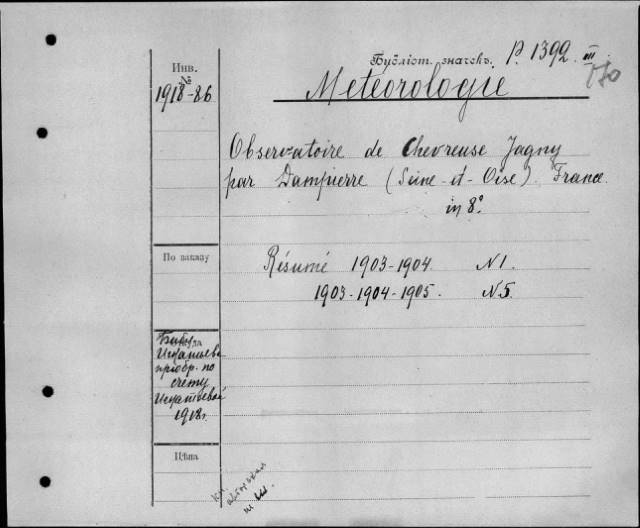 Инв.
№
1918-86
Бубліот. значекъ. P. 1392 III
Météorologie
Observatoire de Chevreuse Jagny
par Dampierre (Seine-et-Oise). France.
in 8°
По заказу
Résumé 1903-1904. N1.
1903-1904-1905. N5.
приобр. по
счету
1918г.
Цѣна